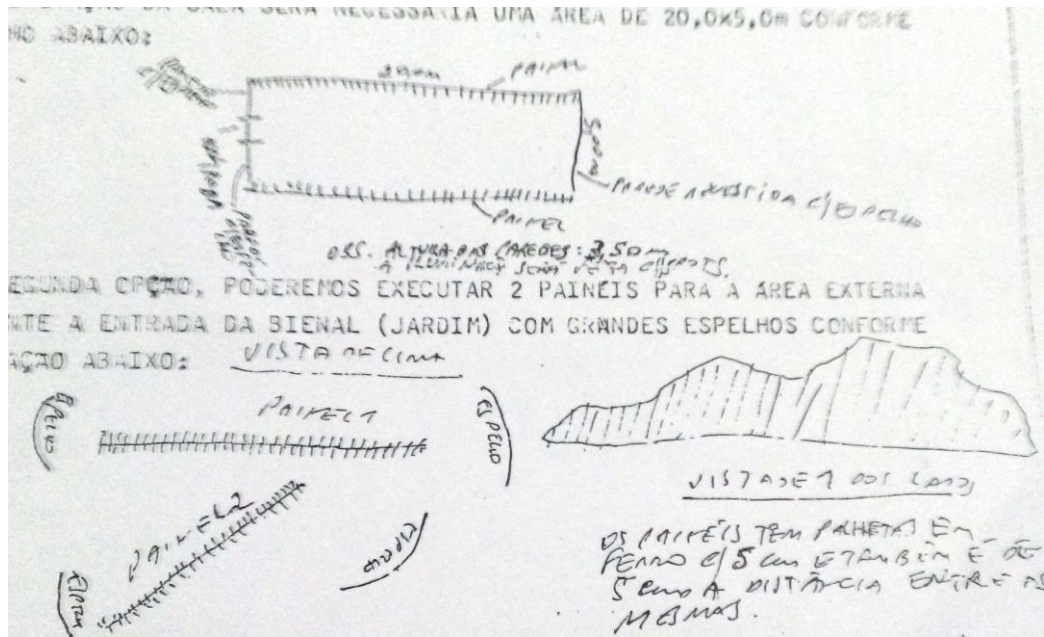 DA SALA SERÁ NECESSÁRIA UMA ÁREA DE 20,0x5,0m CONFORME
ABAIXO:
PAINEL
5,00m
PAREDE REVESTIDA C/ ESPELHO
PAINEL
OBS. ALTURA DAS PAREDES: 3,50m
A ILUMINAÇÃO SERÁ FEITA C/ SPOTS.
SEGUNDA OPÇÃO, PODEREMOS EXECUTAR 2 PAINÉIS PARA A ÁREA EXTERNA
A ENTRADA DA BIENAL (JARDIM) COM GRANDES ESPELHOS CONFORME
ABAIXO:
VISTA DE CIMA
ESPELHO
PAINEL 1
ESPELHO
PAINEL 2
ESPELHO
VISTA DE 1 DOS LADOS
OS PAINÉIS TEM PALHETAS EM
FERRO C/ 5 cm E TAMBÉM É DE
5 cm A DISTÂNCIA ENTRE AS
MESMAS.